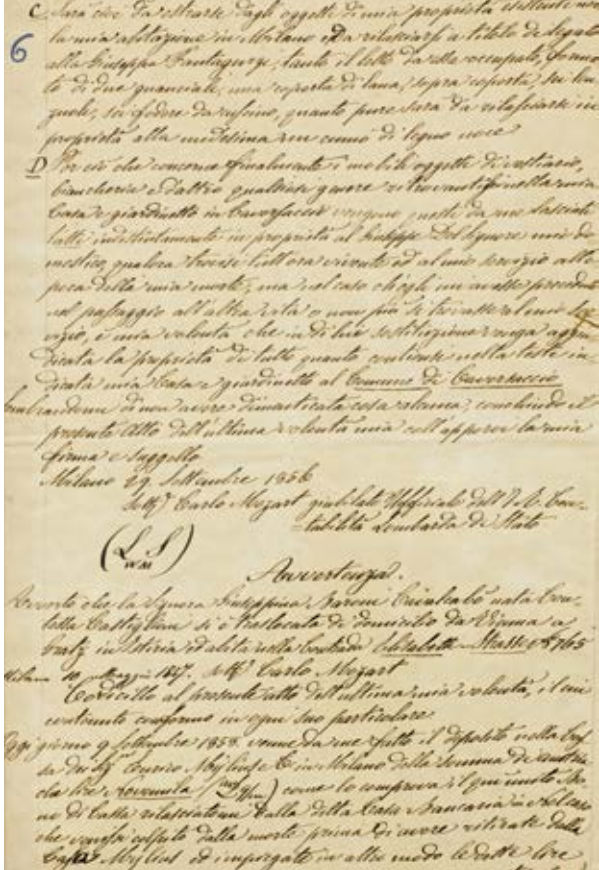 C Sarà cio da estrarsi dagli oggetti di mia proprietà esistente nel
la mia abitazione in Milano e da rilasciarsi a titolo di legato
6
alla Giuseppa Fantagurge, tanto il letto da essa occupato, forni
to di due guanciali, una coperta di lana, sopra coperta, sei len
zuola, sei fodere da cuscino, quanto pure sarà da rilasciarsi in
proprietà alla medesima un comò di legno noce
D Per ciò che concerne finalmente i mobili oggetti di vestiario,
biancheria e d'altro qualsiasi genere ritrovantisi nella mia
Casa e giardinetto in Caversaccio vengono questi da me lasciati
tutti indistintamente in proprietà al Giuseppe Del Signore mio do
mestico, qualora trovisi tutt'ora vivente ed al mio servizio all'e
poca della mia morte; ma nel caso ch'egli mi avesse preceduto
nel passaggio all'altra vita o non più si trovasse al mio ser
vizio, è mia volontà che in di lui sostituzione venga aggiu
dicata la proprietà di tutto quanto contiensi nella testè in
dicata mia Casa e giardinetto al Comune di Caversaccio
Sembrandomi di non avere dimenticata cosa alcuna, conchiudo il
presente Atto dell'ultima volontà mia coll'apporvi la mia
firma e suggello
Milano 29 Settembre 1856
sott° Carlo Mozart giubilato Ufficiale dell'I. R. Con-
tabilità Lombarda di Stato
(L. S)
W M
Avvertenza.
Avverto che la Signora Giuseppina Baroni Cavalcabò nata Con
tessa Castiglioni si è traslocata di domicilio da Vienna a
Gratz in Istiria ed abita nella Contrada Elisabeth Strasse N° 765
Milano 10 Maggio 1857. sott° Carlo Mozart
Codicillo al presente atto dell'ultima mia volontà, il cui
contenuto confermo in ogni suo particolare
Oggi giorno 9 Settembre 1858 venne da me fatto il deposito nella Cas
sa dei Sigi Enrico Mylius e C. in Milano della somma di austria
che lire Novemila come lo comprova il qui unito Bo
no di Cassa rilasciatomi dalla detta Casa Bancaria, e nel caso
che venissi colpito dalla morte prima di avere ritirate dalla
Casa Mylius ed impiegate in altro modo le dette lire